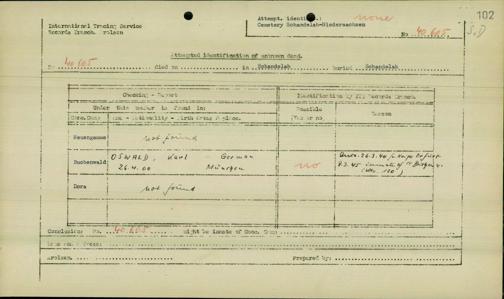 102
S.D
International Tracing Service
Records Branch. Arolsen
Attempt. identif.: none
Cemetery Schandelah-Niedersachsen
No 40.605.
Attempted identification of unknown dead.
No 40605 died on in Schandelah buried Schandelah
Checking - Report
Identification by ITS Records Branch.
Under this number is found in:
Possible
Yes or no.
Reason
Conc.Camp Name - Nationality - Birth Date & place.
Neuengamme not found
Buchenwald OSWALD, Karl - German
26.4.00 München
no
Dora not found
Conclusion: No. 40605 might be inmate of Conc. Camp
Arolsen,
Prepared by: